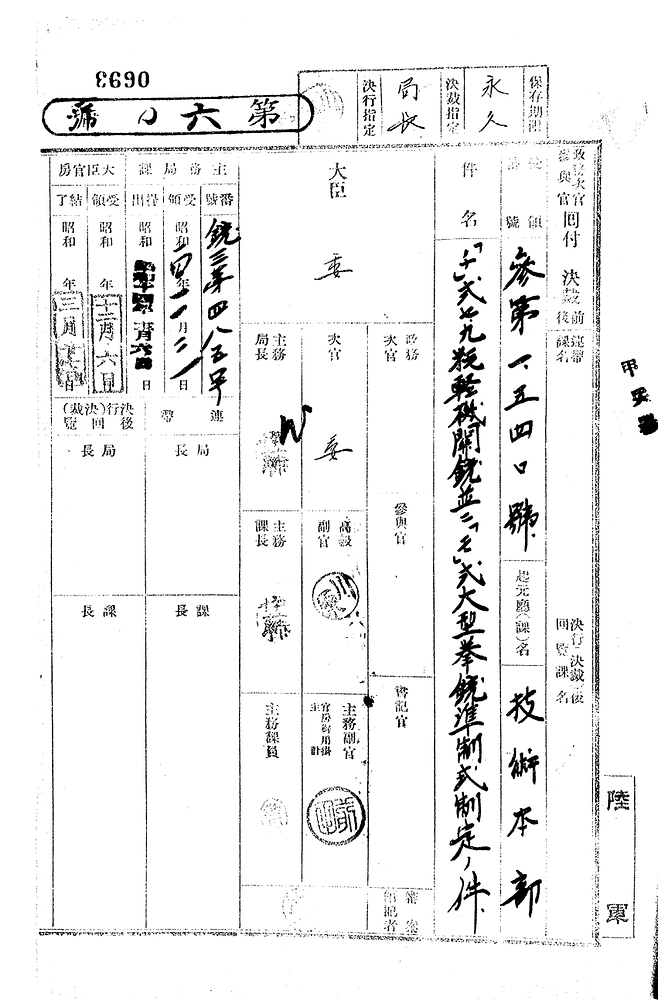 0693
第六〇號
保存期限
永久
決裁指定
局長
決行指定
政務次官
參與官
回付
決裁
前
後
連帶
課名
決行、決裁後
回覽課名
受領
番號
參第一、五四〇號
起元廳(課)名
技術本部
件名
「チ」式七・九粍軽機關銃並ニ「モ」式大型拳銃準制式制定ノ件
大臣
委
政務
次官
參與官
書記官
次官
委
高級
副官
主務副官
官房御用掛
主計
主務
局長
主務
課長
主務課員
主務局課
番號
銃三第四八五号
受領
昭和
年
月
日
提出
昭和
日
大臣官房
受領
昭和
年
十二月六日
結了
昭和
年
三月
日
連帶
局長
課長
決行(決裁)後
回覽
局長
課長
陸軍